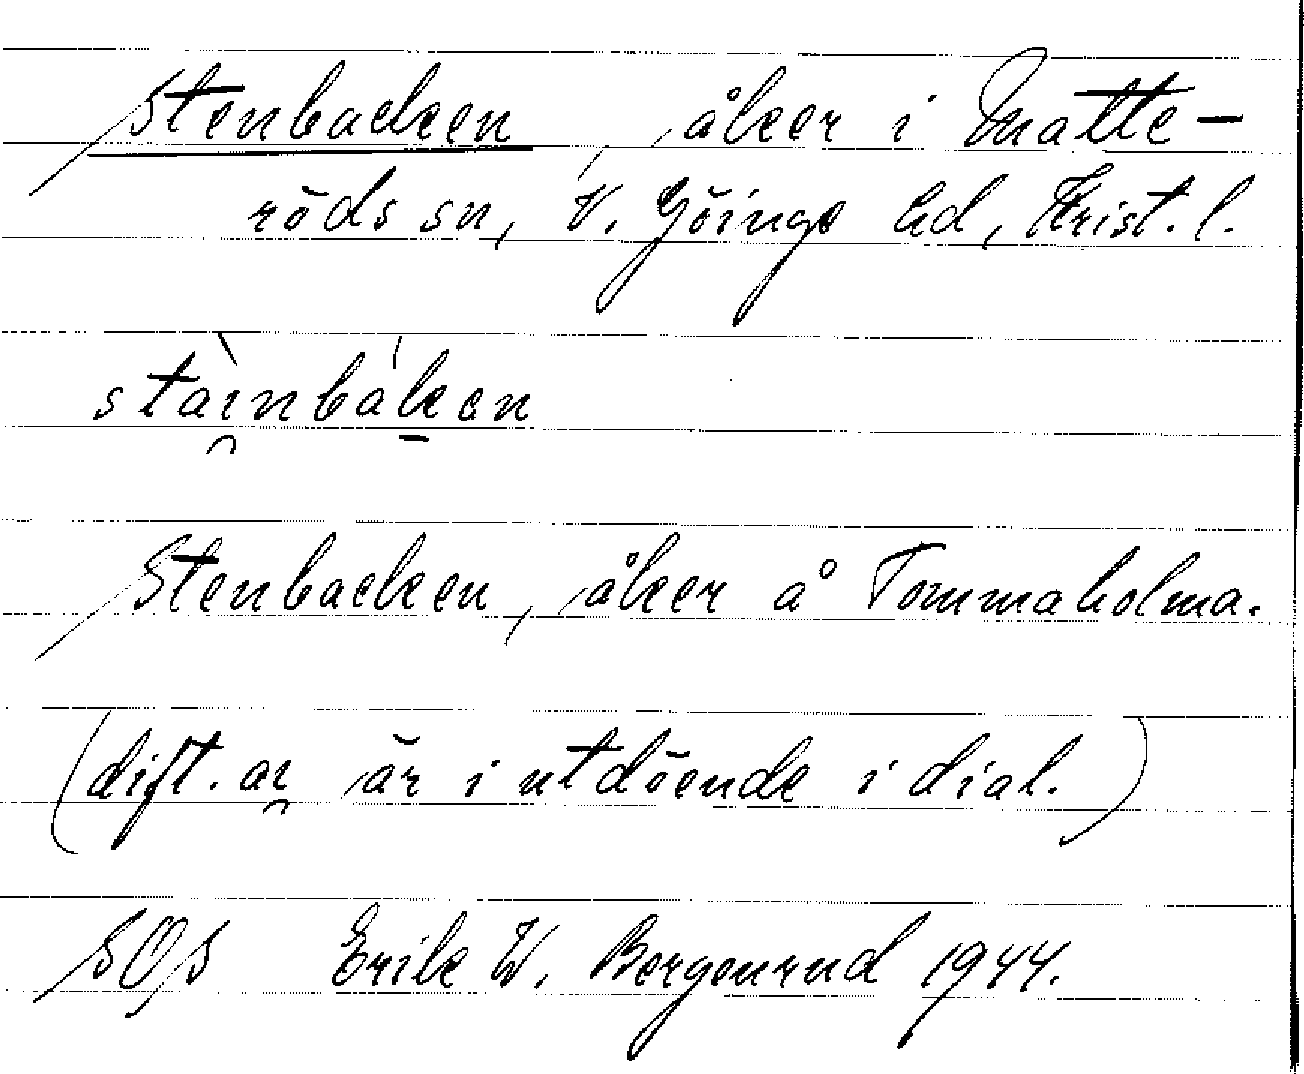 Stenbacken, åker i Matte-
röds sn, V. Göinge hd, Krist. l.
stàinbáken
Stenbacken, åker å Tommaholma.
(dift. ai är i utdöende i dial.)
SOS Erik W. Bergenrud 1944.